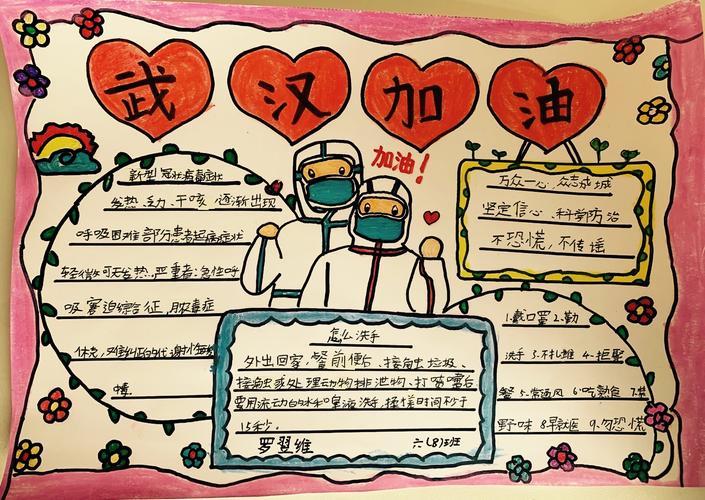 武汉加油
加油！
新型冠状病毒症状
发热、乏力、干咳、逐渐出现
呼吸困难部分患者起病症状
轻微可无发热.严重者:急性呼
吸窘迫综合征,脓毒症
休克,难纠正的代谢性
万众一心、众志成城
坚定信心、科学防治
不恐慌,不传谣
怎么洗手
外出回家、餐前便后、接触垃圾、
接触或处理动物排泄物、打喷嚏后
要用流动的水和皂液洗手,揉搓时间不少于
15秒。
罗翌维 六(8)班
1.戴口罩 2.勤
洗手 3.不扎堆 4.拒聚
餐 5.常通风 6.吃熟食 7.禁
野味 8.早就医 9.勿恐慌